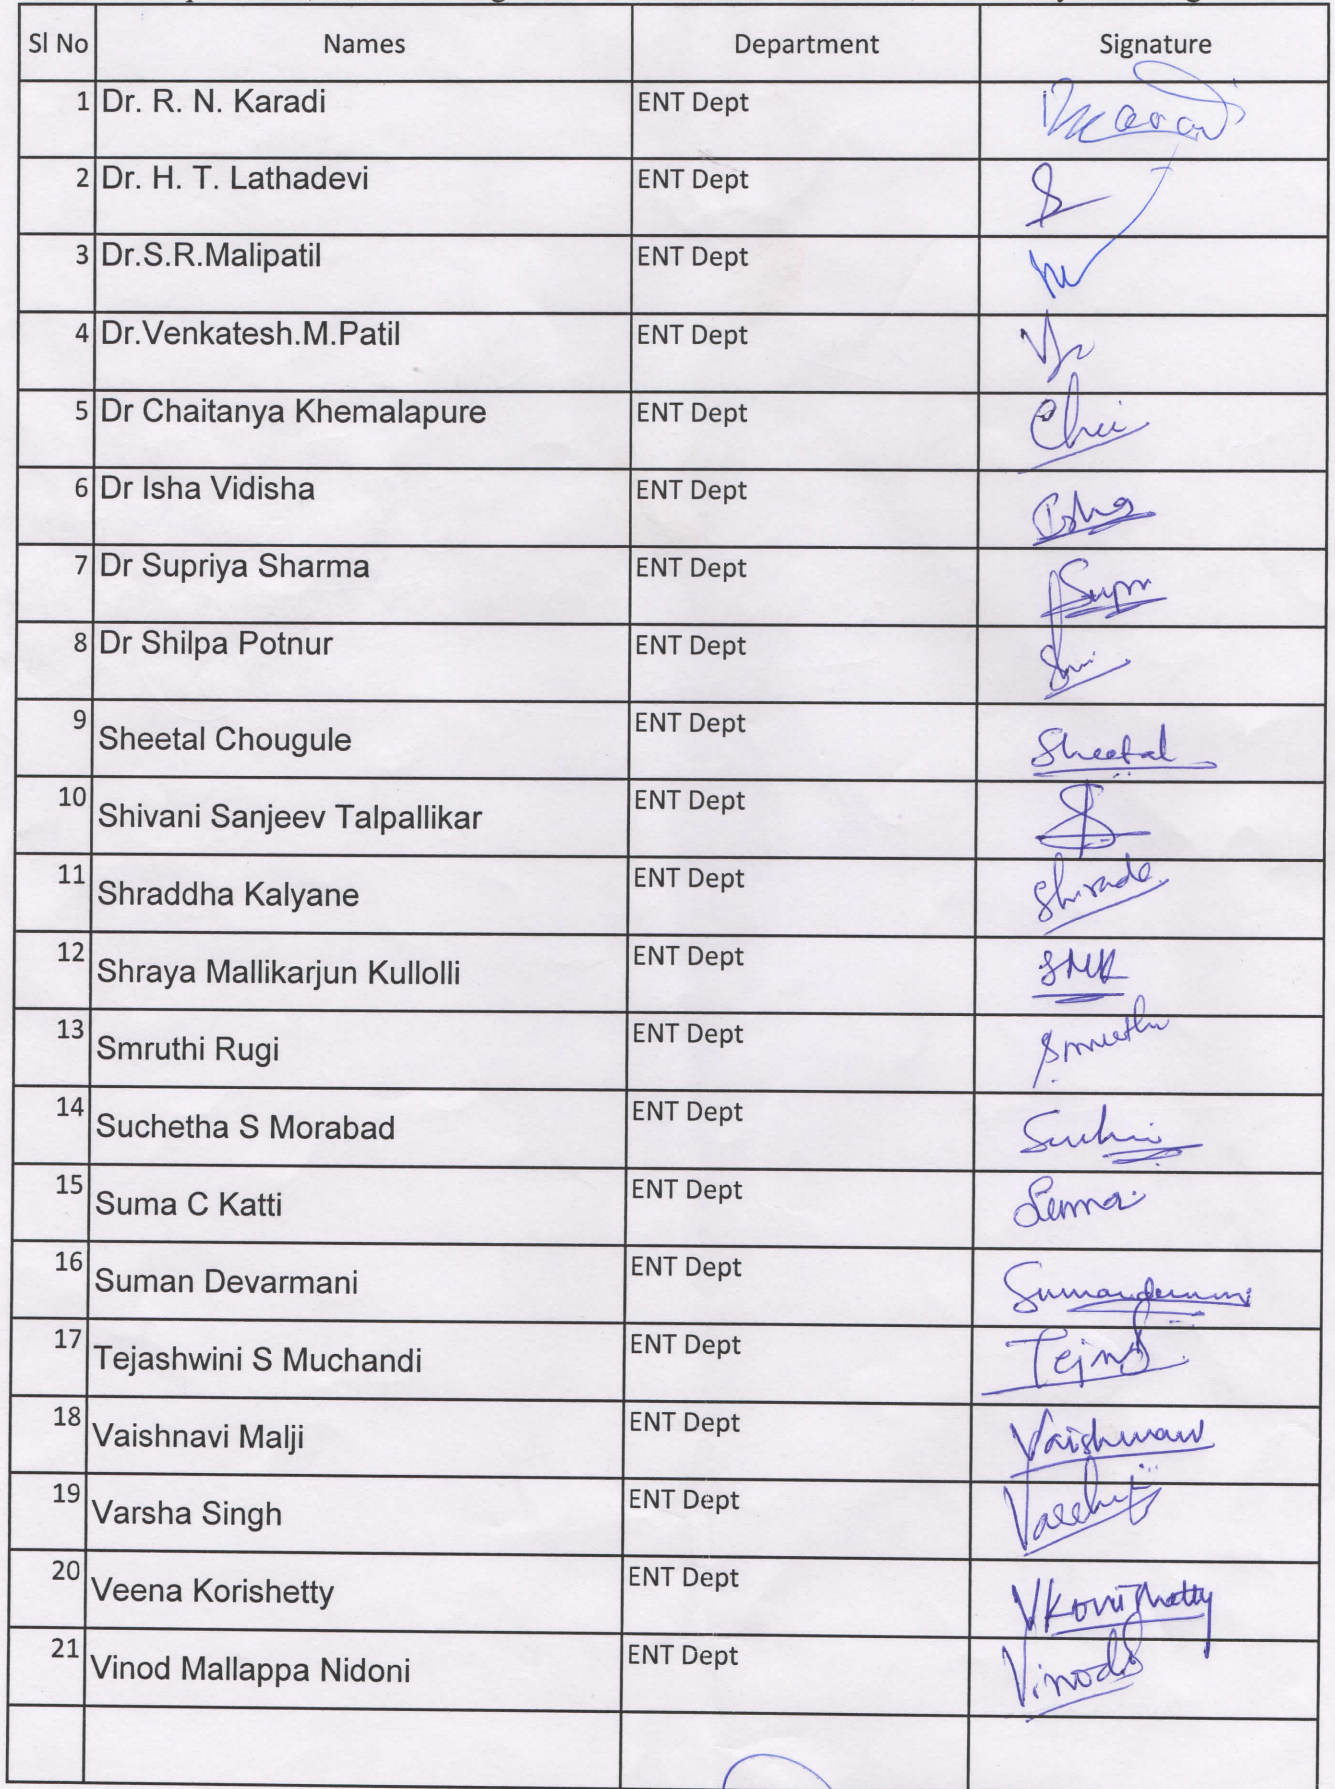 Sl No Names Department Signature
1 Dr. R. N. Karadi ENT Dept
2 Dr. H. T. Lathadevi ENT Dept
3 Dr.S.R.Malipatil ENT Dept
4 Dr.Venkatesh.M.Patil ENT Dept
5 Dr Chaitanya Khemalapure ENT Dept
6 Dr Isha Vidisha ENT Dept Isha
7 Dr Supriya Sharma ENT Dept
8 Dr Shilpa Potnur ENT Dept
9 Sheetal Chougule ENT Dept Sheetal
10 Shivani Sanjeev Talpallikar ENT Dept
11 Shraddha Kalyane ENT Dept
12 Shraya Mallikarjun Kullolli ENT Dept SMK
13 Smruthi Rugi ENT Dept
14 Suchetha S Morabad ENT Dept
15 Suma C Katti ENT Dept Suma
16 Suman Devarmani ENT Dept
17 Tejashwini S Muchandi ENT Dept
18 Vaishnavi Malji ENT Dept
19 Varsha Singh ENT Dept
20 Veena Korishetty ENT Dept VKorishetty
21 Vinod Mallappa Nidoni ENT Dept